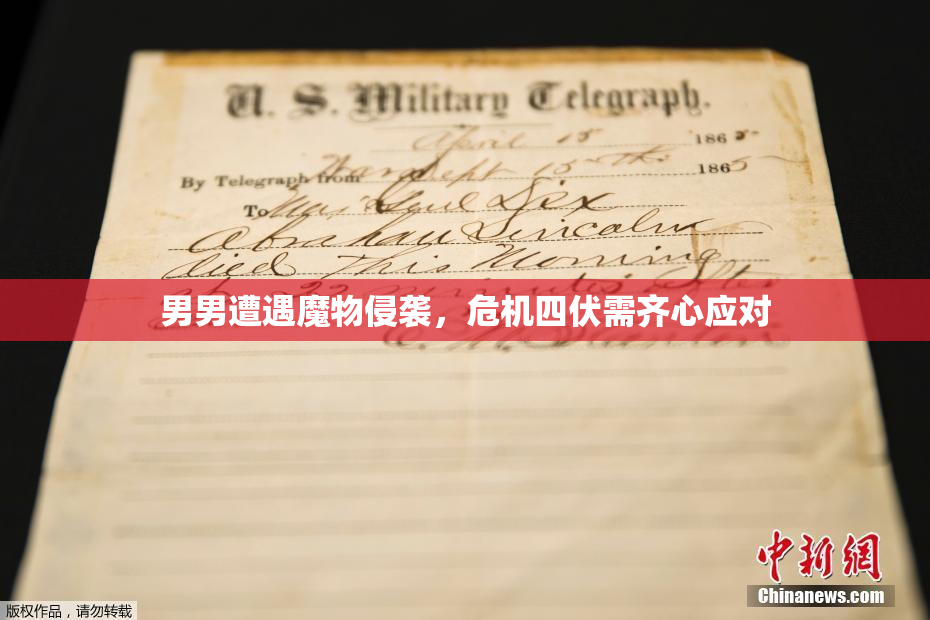 U. S. Military Telegraph.
April 15 1865
By Telegraph from War Dept 15th 1865
To Maj Genl Dix
Abraham Lincoln
died This Morning
at 22 minutes after
男男遭遇魔物侵袭，危机四伏需齐心应对
E. M. Stanton
中新网
Chinanews.com
版权作品，请勿转载